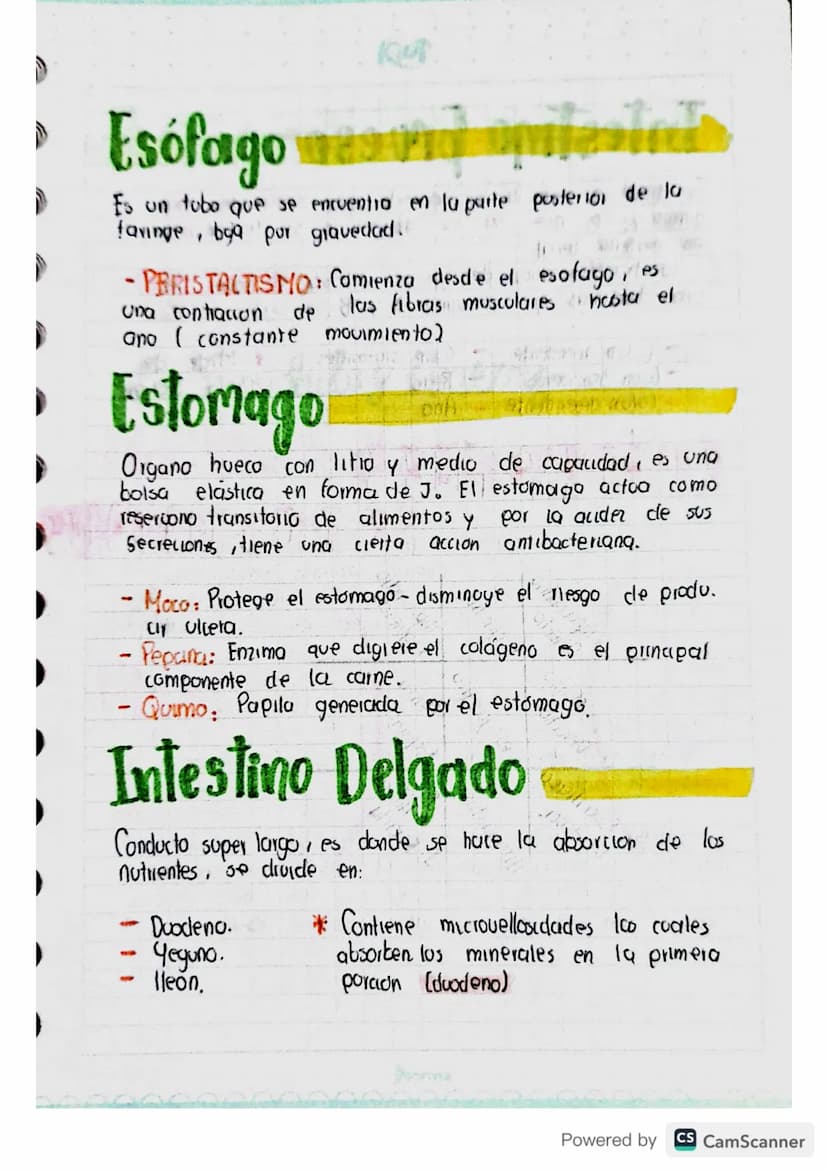 Esófago
Es un tubo que se encuentra en la parte posterior de la
faringe, baja por gravedad.
- PERISTALTISMO: Comienza desde el esofago, es
una contracion de las fibras musculares hasta el
ano (constante movimiento)
Estomago
Organo hueco con litro y medio de capacidad, es una
bolsa elástica en forma de J. El estomago actua como
transitorio de alimentos y por la acidez de sus
secreciones, tiene una cierta acción antibacteriana.
- Moco: Protege el estomago - disminuye el riesgo de produ.
cir ulcera.
- Pepcina: Enzima que digiere el colágeno es el principal
componente de la carne.
- Quimo: Papilla generada por el estómago.
Intestino Delgado
Conducto super largo, es donde se hace la absorcion de los
nutrientes, se divide en:
- Duodeno.
- Yeguno.
- Ileon.
* Contiene microvellosidades las cuales
absorben los minerales en la primera
porción (duodeno)
Powered by CS CamScanner